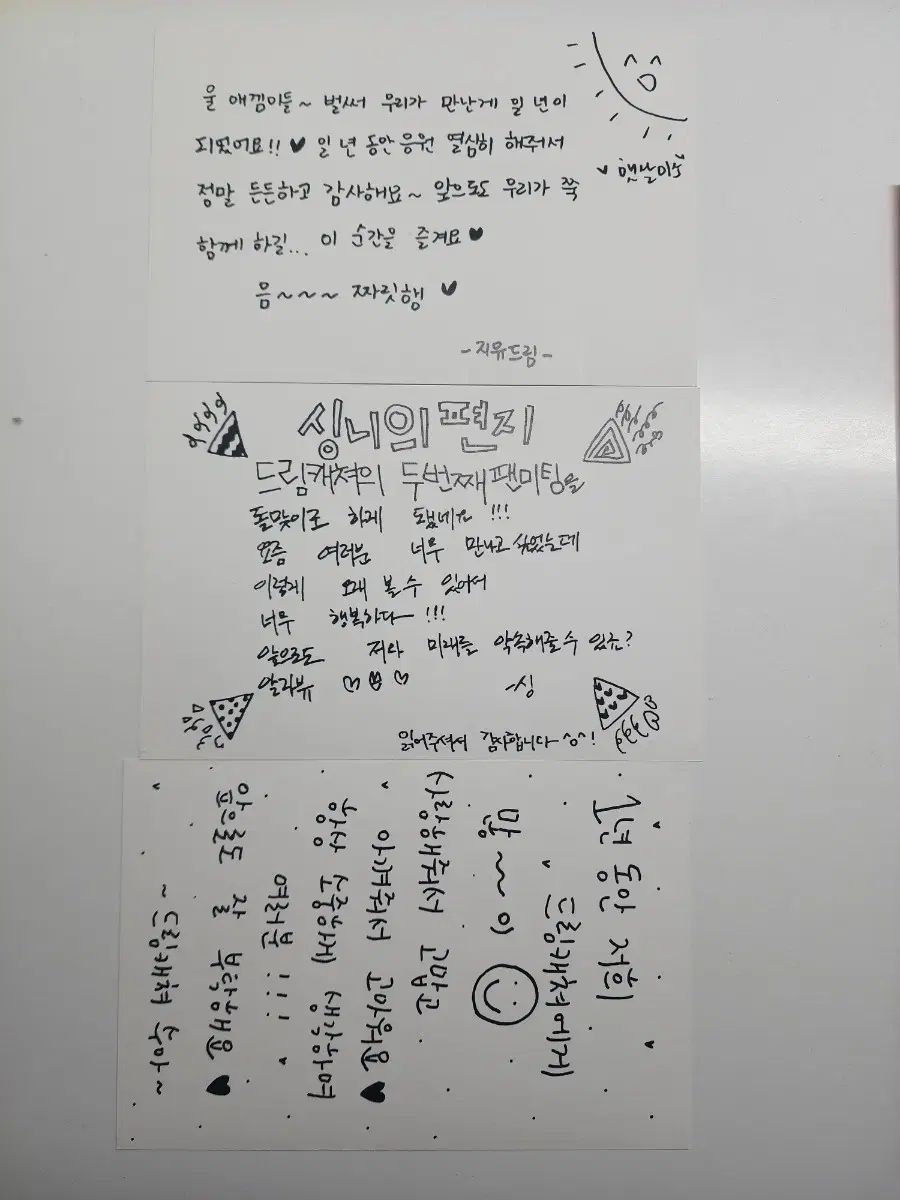 울 애낌이들~ 벌써 우리가 만난게 일 년이
되었어요!! ♥ 일 년 동안 응원 열심히 해줘서
정말 든든하고 감사해요~ 앞으로도 우리가 쭉
함께 하길... 이 순간을 즐겨요 ♥
음~~~ 짜릿행 ♥
햇살미소
-지유드림-
싱니의 편지
드림캐쳐의 두번째 팬미팅을
돌맞이로 하게 됐네요 !!!
요즘 여러분 너무 만나고 싶었는데
이렇게 오래 볼 수 있어서
너무 행복하다~ !!!
앞으로도 저와 미래를 약속해줄 수 있죠?
알라뷰 ♡♡♡
-싱
읽어주셔서 감사합니다~^o^!
1년 동안 저희
드림캐쳐에게
많~~이
사랑해줘서 고맙고
아껴줘서 고마워요 ♥
항상 소중하게 생각하며
여러분 !!!
앞으로도 잘 부탁해용 ♥
~드림캐쳐 수아~